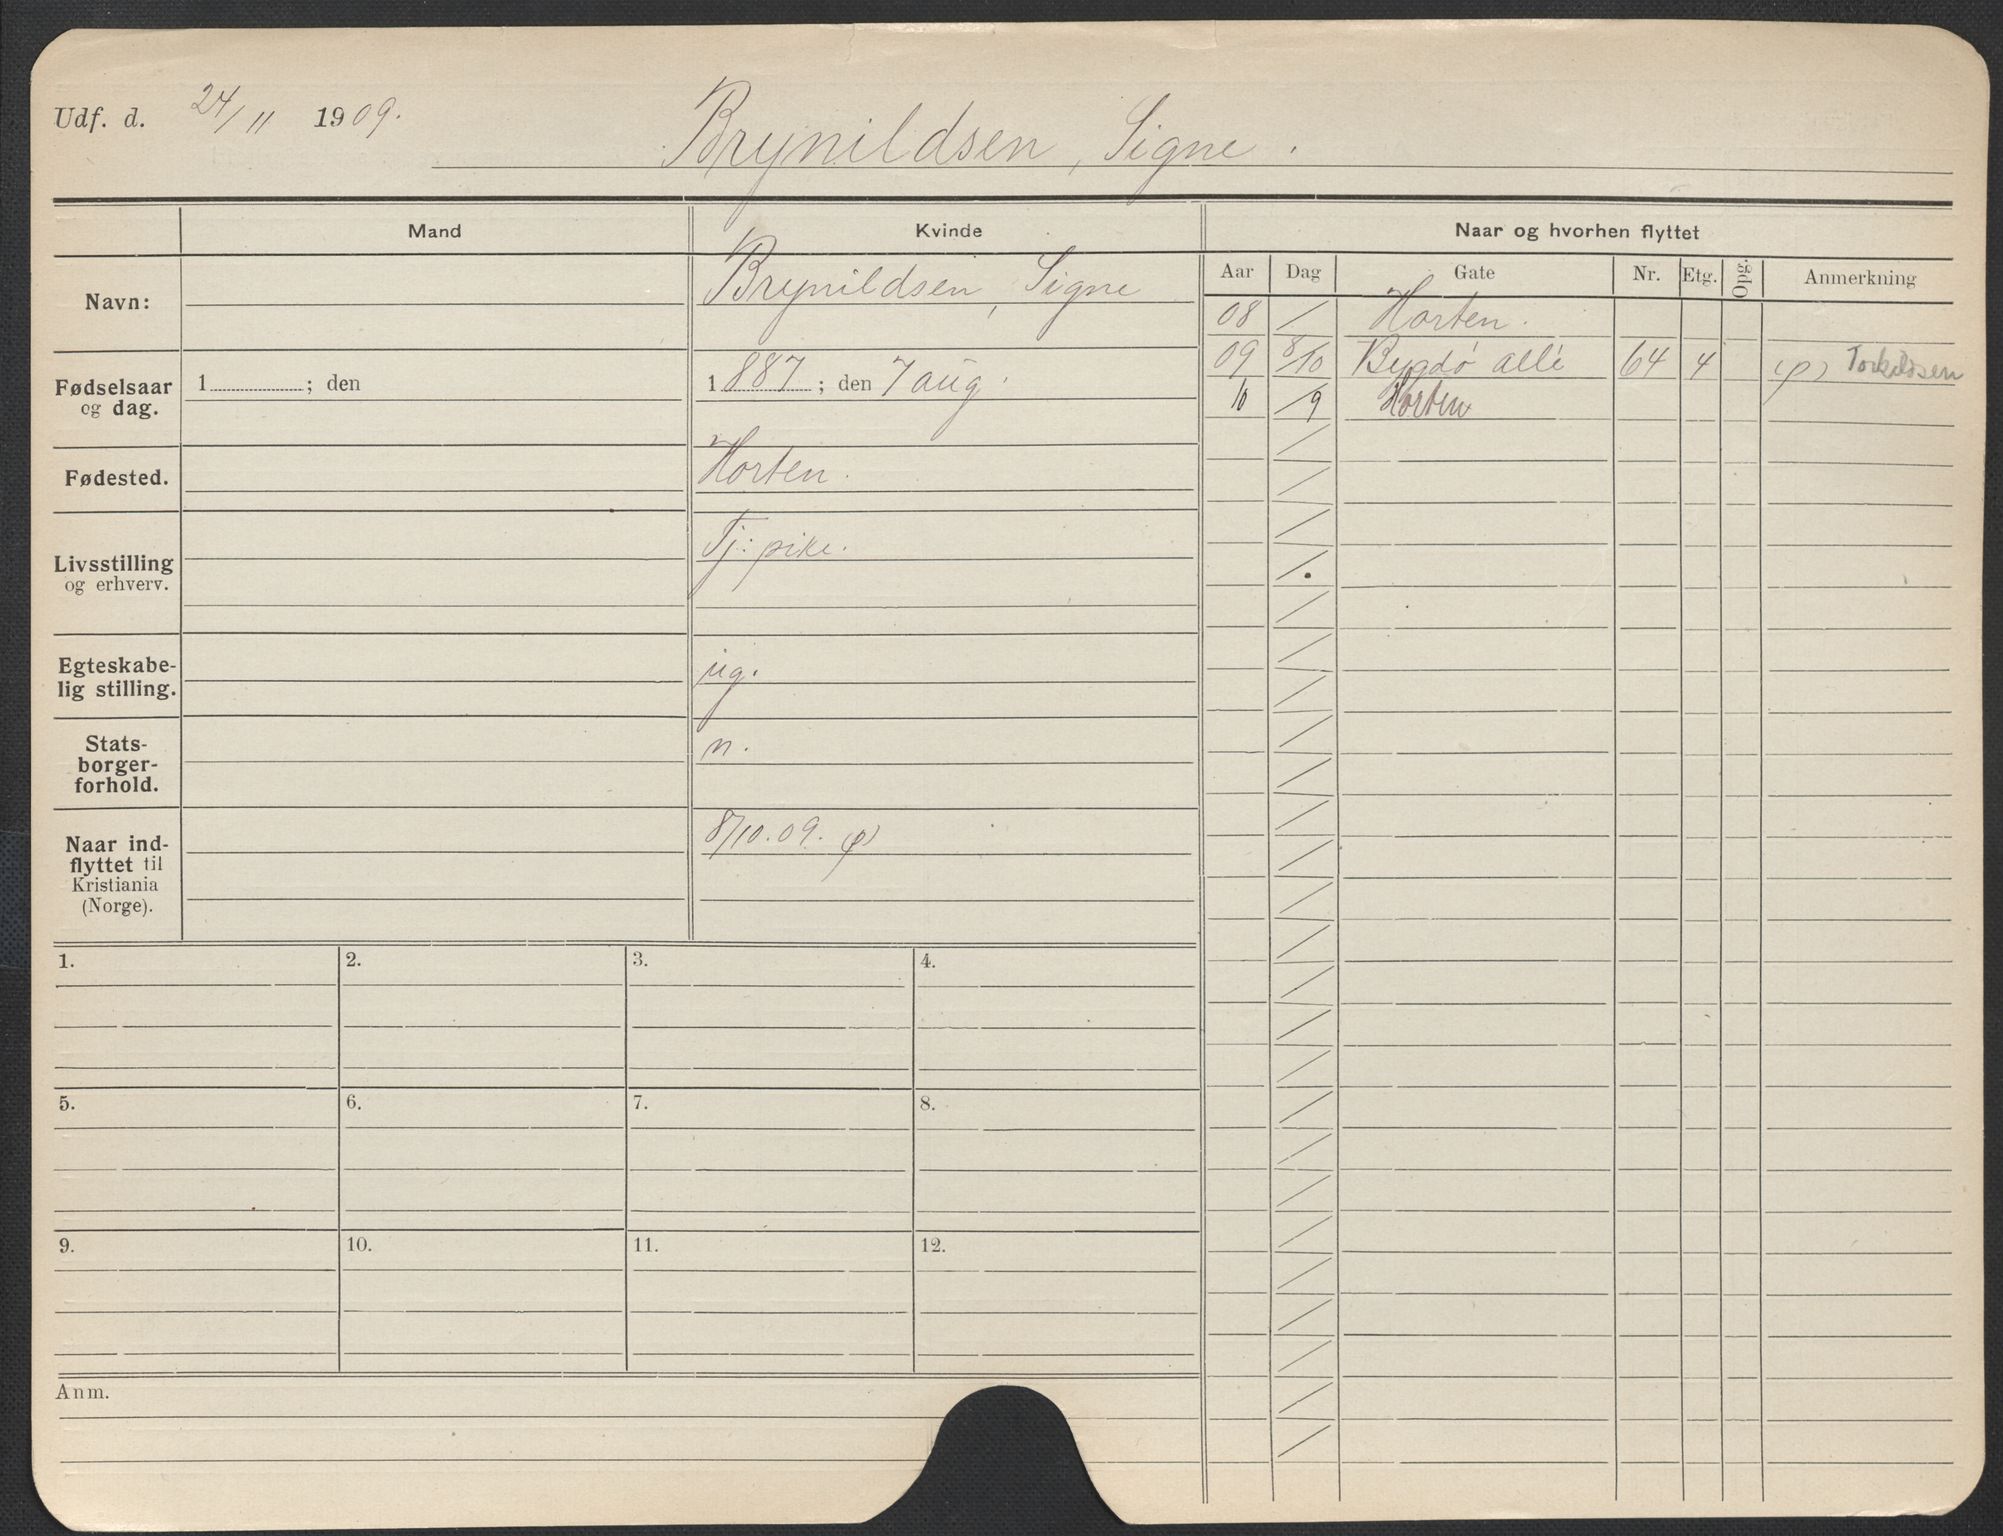 Udf. d. 24/11 1909.
Brynildsen, Signe.
Mand
Kvinde
Naar og hvorhen flyttet
Navn:
Brynildsen, Signe
Fødselsaar og dag.
1 ; den
1887 ; den 7 aug.
Fødested.
Horten.
Livsstilling og erhverv.
Tj: pike.
Egteskabe-
lig stilling.
ug.
Stats-
borger-
forhold.
n.
Naar ind-
flyttet til
Kristiania
(Norge).
8/10.09. (p)
Aar Dag Gate Nr. Etg. Opg. Anmerkning
08 / Horten.
09 8/10 Bygdø allé 64 4 (p) Torkildsen
10 /9 Horten
1. 2. 3. 4.
5. 6. 7. 8.
9. 10. 11. 12.
Anm.